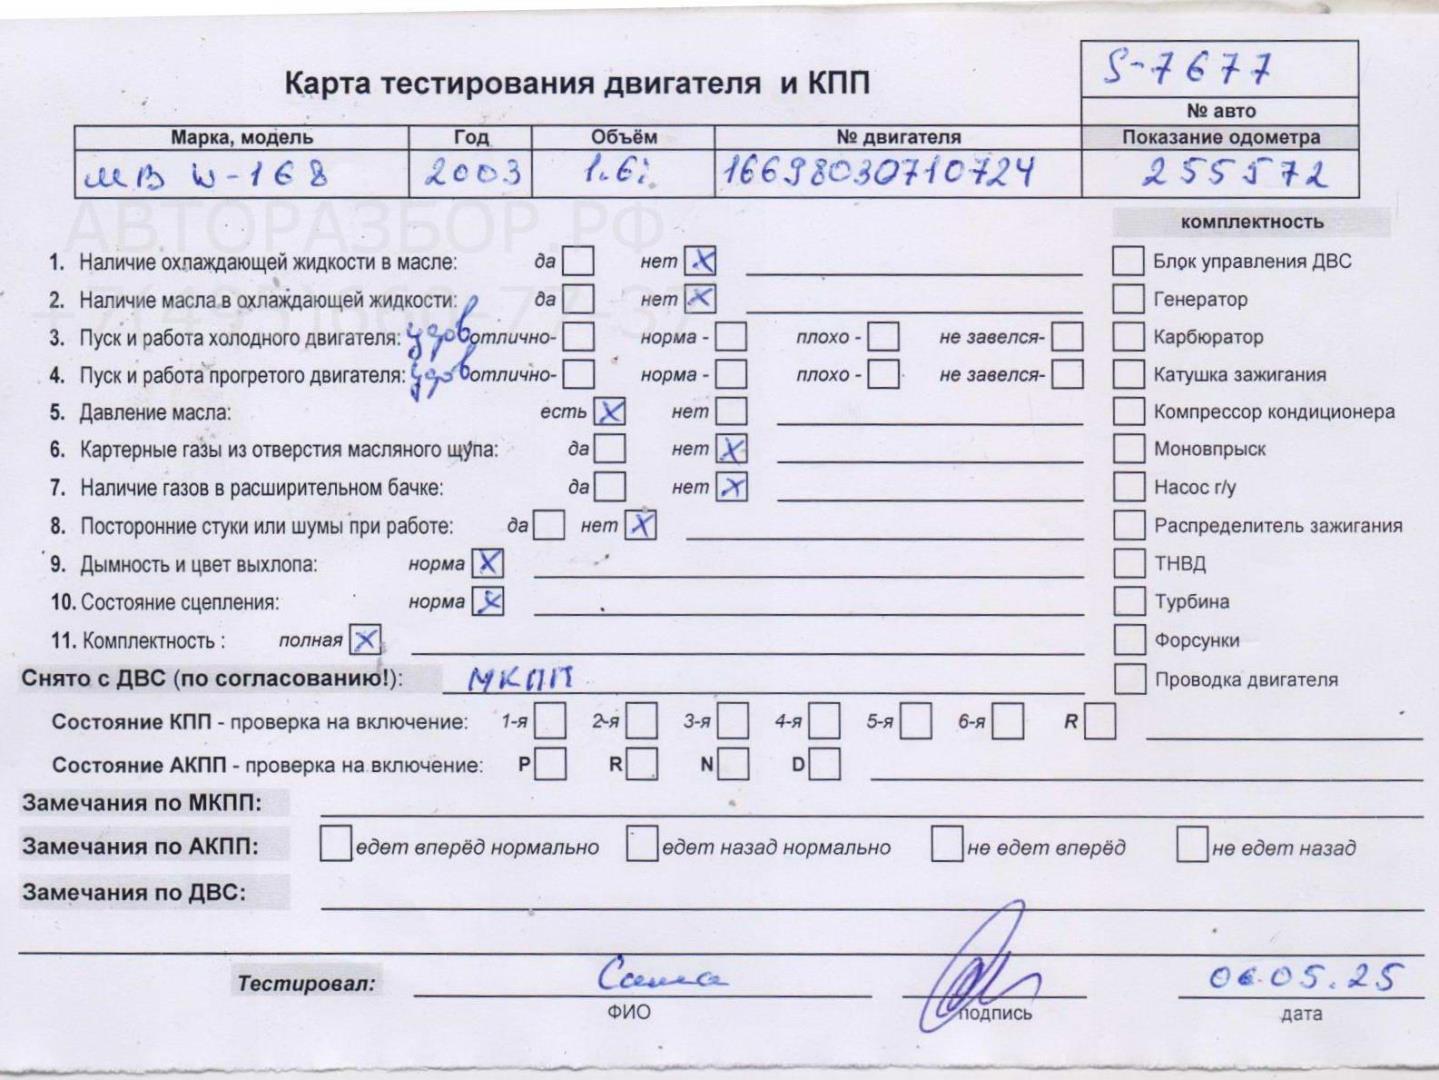 S-7677
Карта тестирования двигателя и КПП
№ авто
Марка, модель Год Объём № двигателя Показание одометра
МВ W-168 2003 1.6i 16698030710724 255572
АВТОРАЗБОР.РФ
комплектность
1. Наличие охлаждающей жидкости в масле: да нет X Блок управления ДВС
+7(495)660-77-37
2. Наличие масла в охлаждающей жидкости: да нет X Генератор
3. Пуск и работа холодного двигателя: удов отлично- норма - плохо - не завелся- Карбюратор
4. Пуск и работа прогретого двигателя: удов отлично- норма - плохо - не завелся- Катушка зажигания
5. Давление масла: есть X нет Компрессор кондиционера
6. Картерные газы из отверстия масляного щупа: да нет X Моновпрыск
7. Наличие газов в расширительном бачке: да нет X Насос г/у
8. Посторонние стуки или шумы при работе: да нет X Распределитель зажигания
9. Дымность и цвет выхлопа: норма X ТНВД
10. Состояние сцепления: норма X Турбина
11. Комплектность : полная X Форсунки
Снято с ДВС (по согласованию!): МКПП Проводка двигателя
Состояние КПП - проверка на включение: 1-я 2-я 3-я 4-я 5-я 6-я R
Состояние АКПП - проверка на включение: P R N D
Замечания по МКПП:
Замечания по АКПП: едет вперёд нормально едет назад нормально не едет вперёд не едет назад
Замечания по ДВС:
Тестировал: Саша 06.05.25
ФИО подпись дата